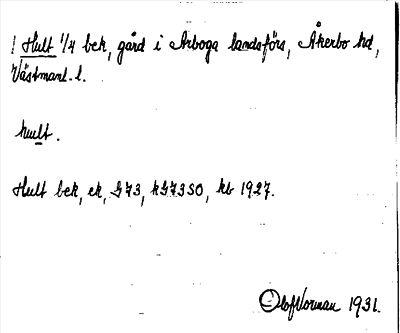 ! Hult 1/4 bek, gård i Arboga landsförs, Åkerbo hd,
Västmanl. l.
hult.
Hult bek, ek, G73, kG73SO, kb 1927.
Olof Norman 1931.